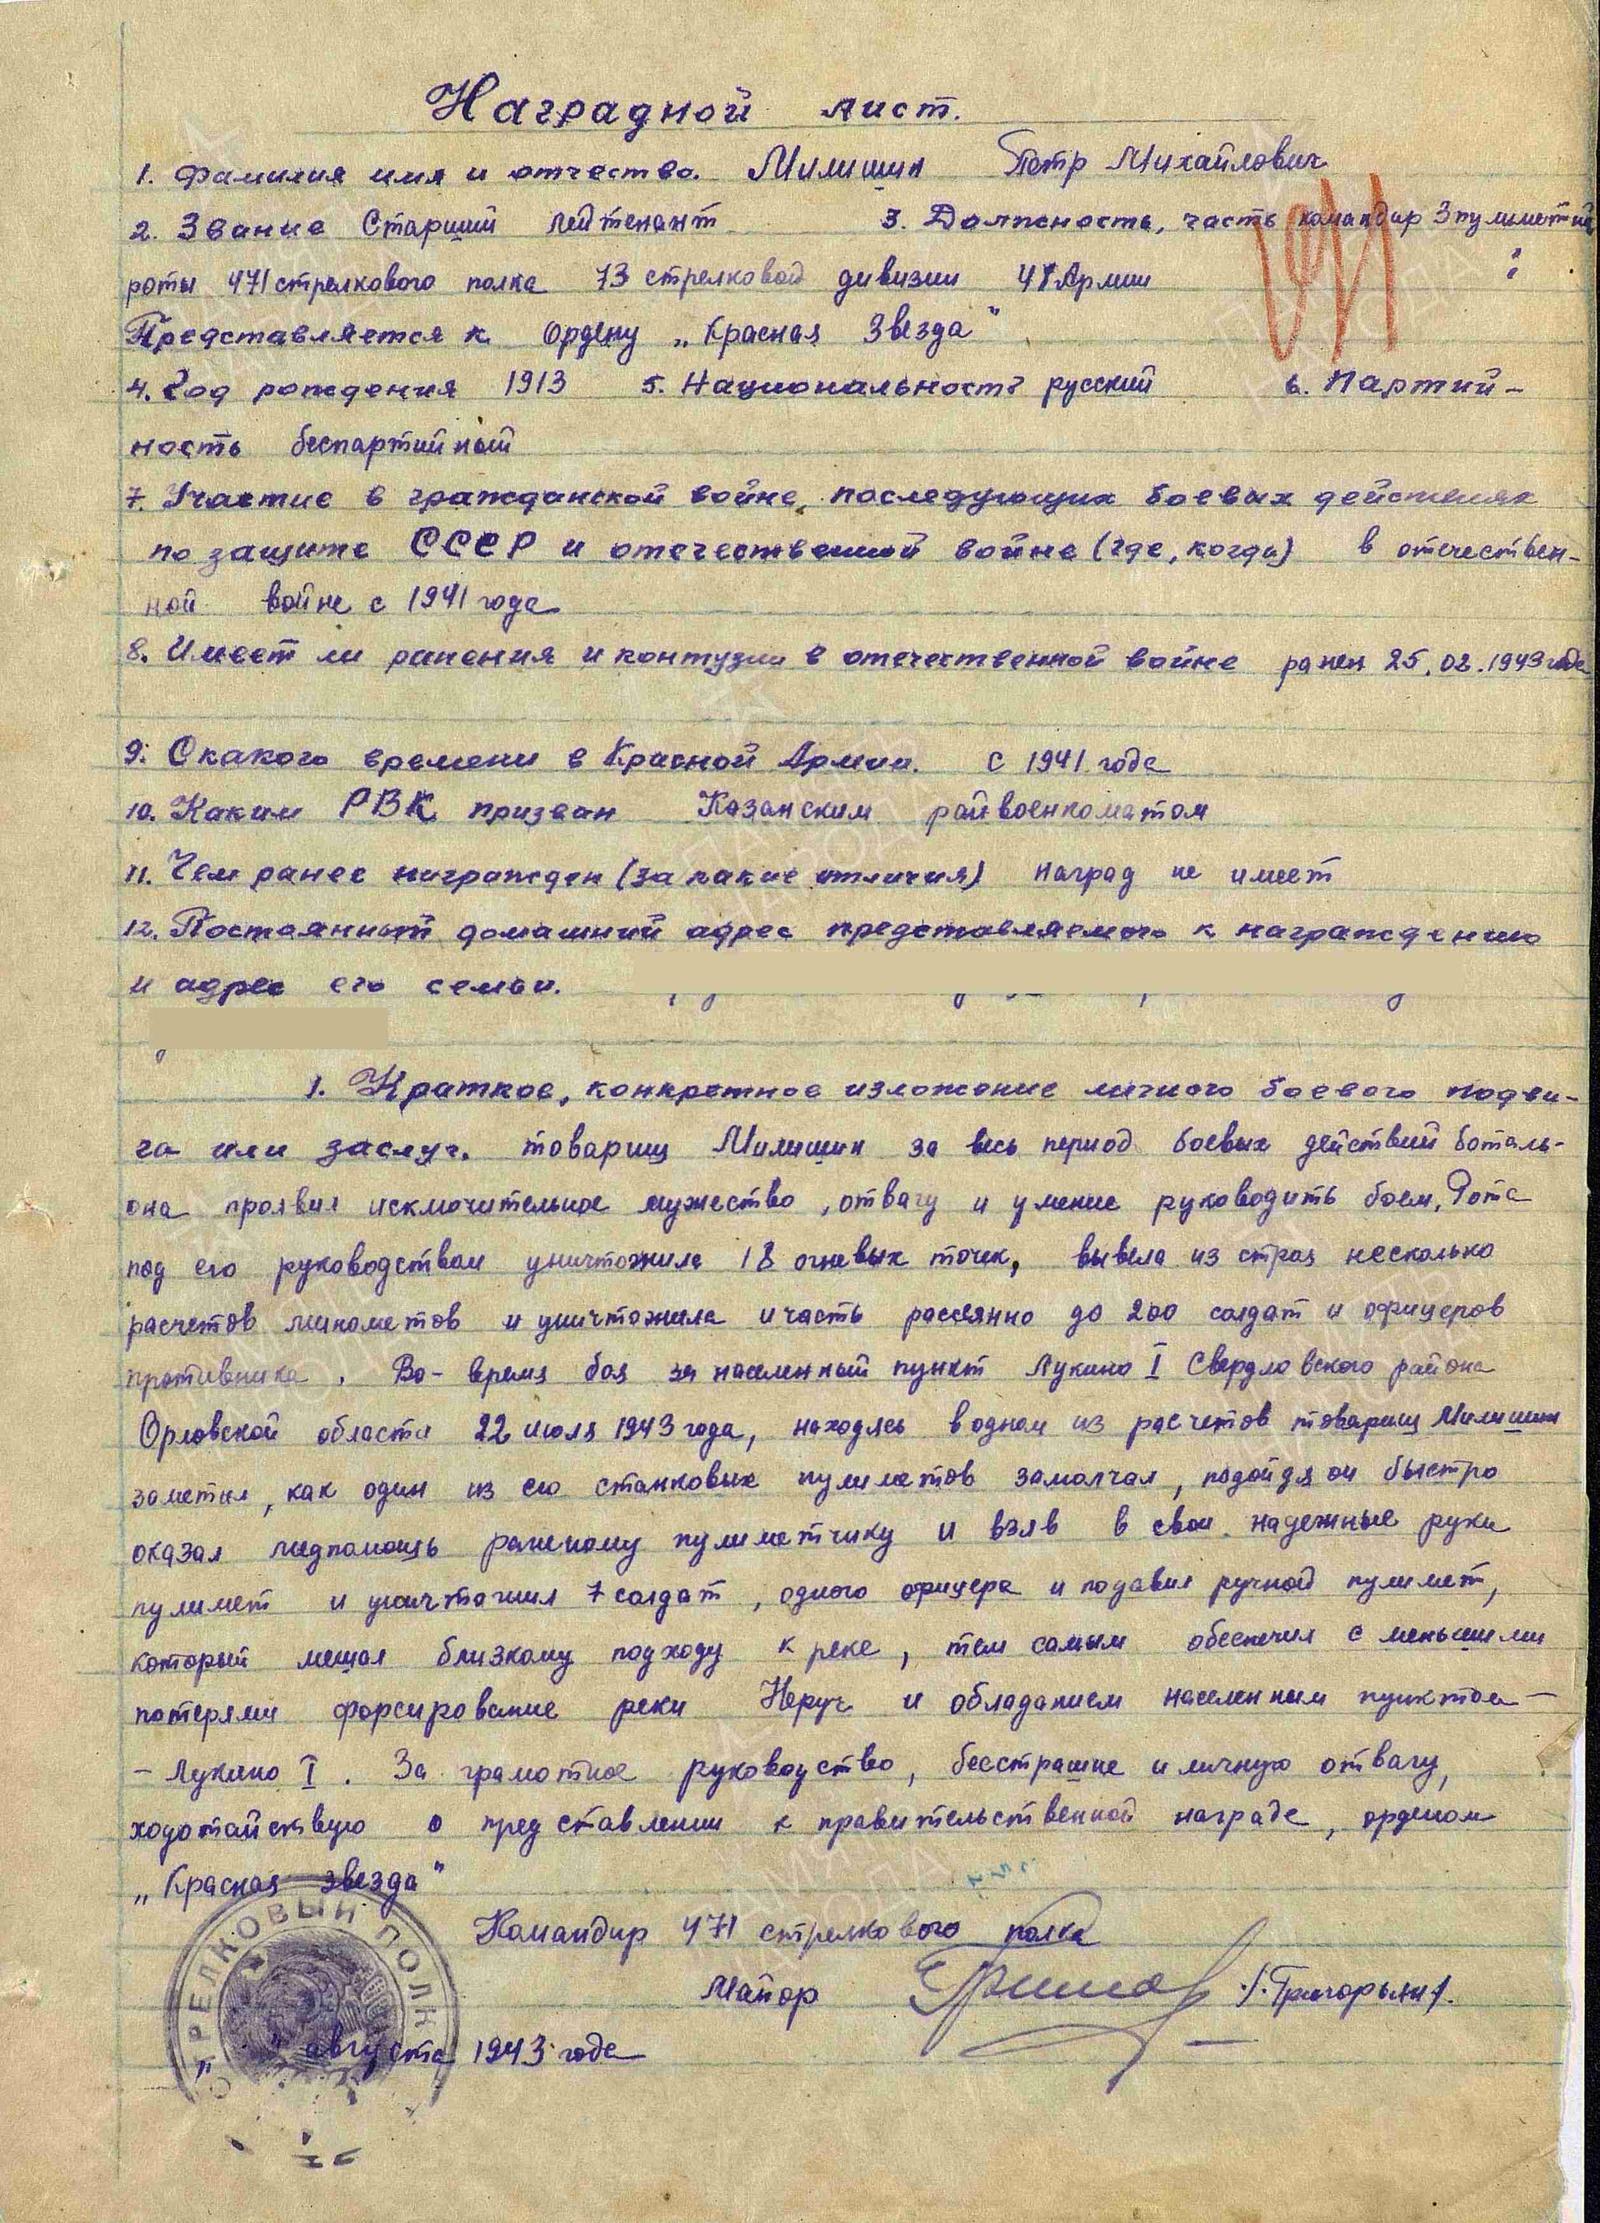 Наградной лист.
1. Фамилия имя и отчество. Милишин Петр Михайлович
2. Звание Старший лейтенант 3. Должность, часть командир 3 пулеметной
роты 471 стрелкового полка 73 стрелковой дивизии 48 Армии
Представляется к ордену „Красная Звезда"
4. Год рождения 1913 5. Национальность русский 6. Партий-
ность беспартийный
7. Участие в гражданской войне, последующих боевых действиях
по защите СССР и отечественной войне (где, когда) в отечествен-
ной войне с 1941 года
8. Имеет ли ранения и контузии в отечественной войне ранен 25.02.1943 года
9. С какого времени в Красной Армии. с 1941 года
10. Каким РВК призван Казанским райвоенкоматом
11. Чем ранее награжден (за какие отличия) наград не имеет
12. Постоянный домашний адрес представляемого к награждению
и адрес его семьи.
1. Краткое, конкретное изложение личного боевого подви-
га или заслуг. товарищ Милишин за весь период боевых действий баталь-
она проявил исключительное мужество, отвагу и умение руководить боем. Рота
под его руководством уничтожила 18 огневых точек, вывела из строя несколько
расчетов минометов и уничтожила и часть рассеянно до 200 солдат и офицеров
противника. Во-время боя за населенный пункт Лукино I Свердловского района
Орловской области 22 июля 1943 года, находясь в одном из расчетов товарищ Милишин
заметил, как один из его станковых пулеметов замолчал, подойдя он быстро
оказал медпомощь раненому пулеметчику и взяв в свои надежные руки
пулемет и уничтожил 7 солдат, одного офицера и подавил ручной пулемет,
который мешал близкому подходу к реке, тем самым обеспечил с меньшими
потерями форсирование реки Неручь и обладанием населенным пунктом -
- Лукино I. За грамотное руководство, бесстрашие и личную отвагу,
ходотайствую о представлении к правительственной награде, орденом
„Красная звезда"
Командир 471 стрелкового полка
Майор /. Григорьян /.
„ " августа 1943 года
СТРЕЛКОВЫЙ ПОЛК
ПАМЯТЬ НАРОДА